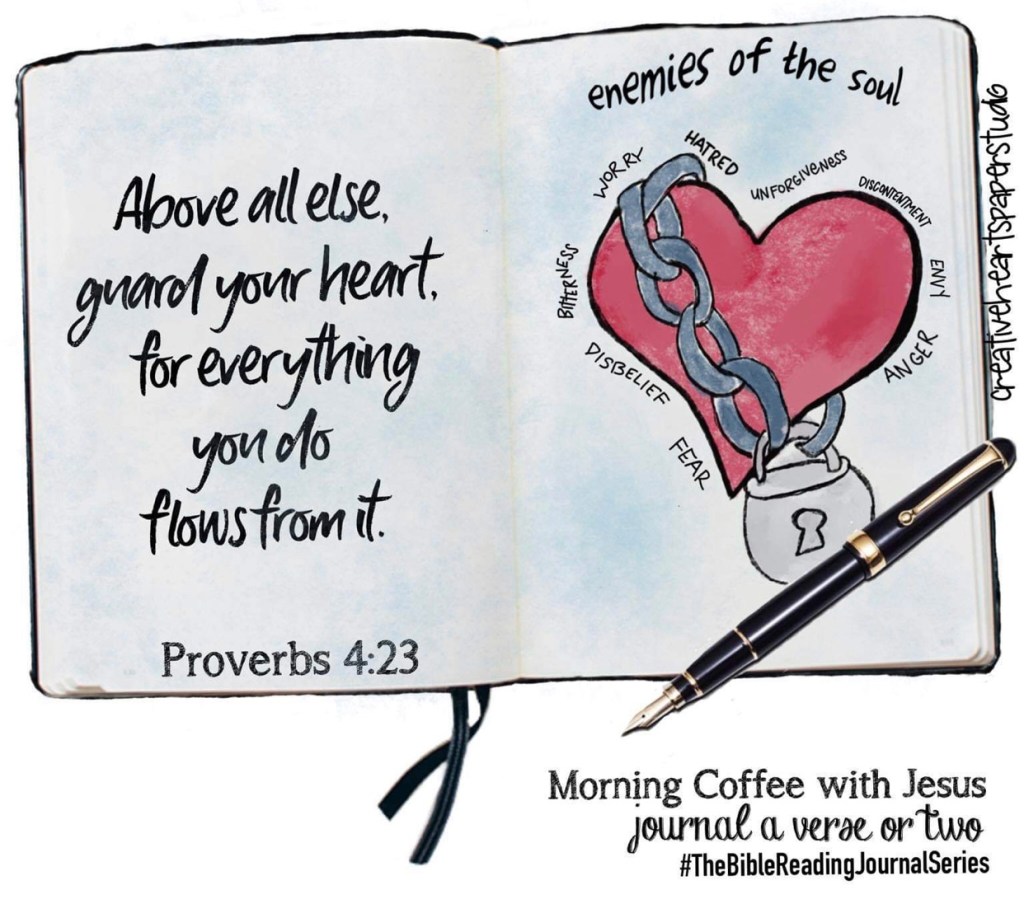 Above all else,
guard your heart,
for everything
you do
flows from it.
Proverbs 4:23
enemies of the soul
WORRY
HATRED
UNFORGIVENESS
DISCONTENTMENT
BITTERNESS
ENVY
DISBELIEF
ANGER
FEAR
creativeheartspaperstudio
Morning Coffee with Jesus
journal a verse or two
#TheBibleReadingJournalSeries